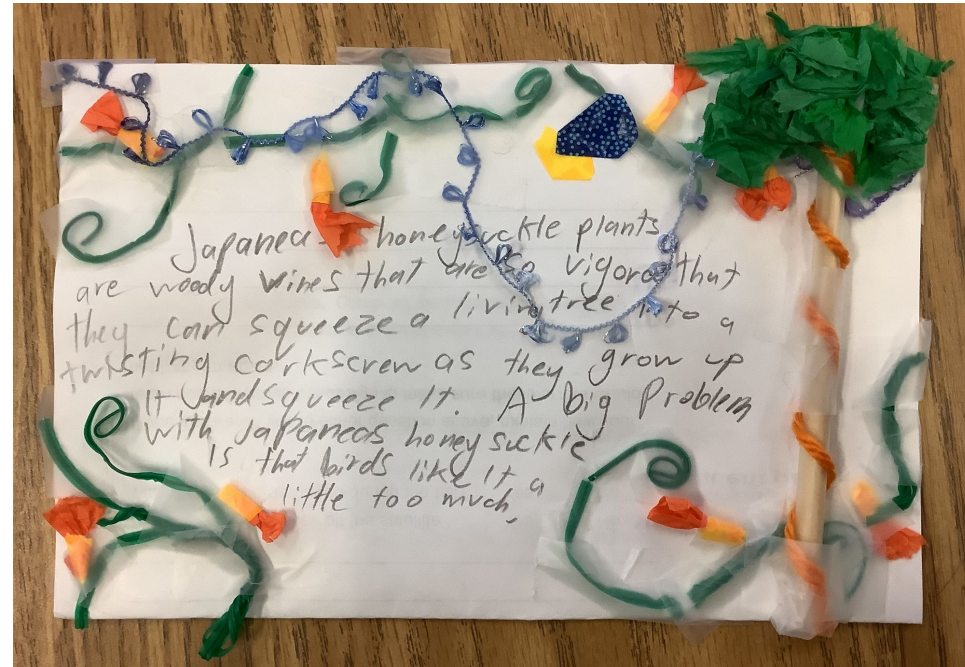 Japanea honeysuckle plants
are woody vines that are so vigoros that
they can squeeze a living tree into a
twisting corkscrew as they grow up
It and squeeze It. A big Problem
with Japaneas honeysuckle
Is that birds like It a
little too much,